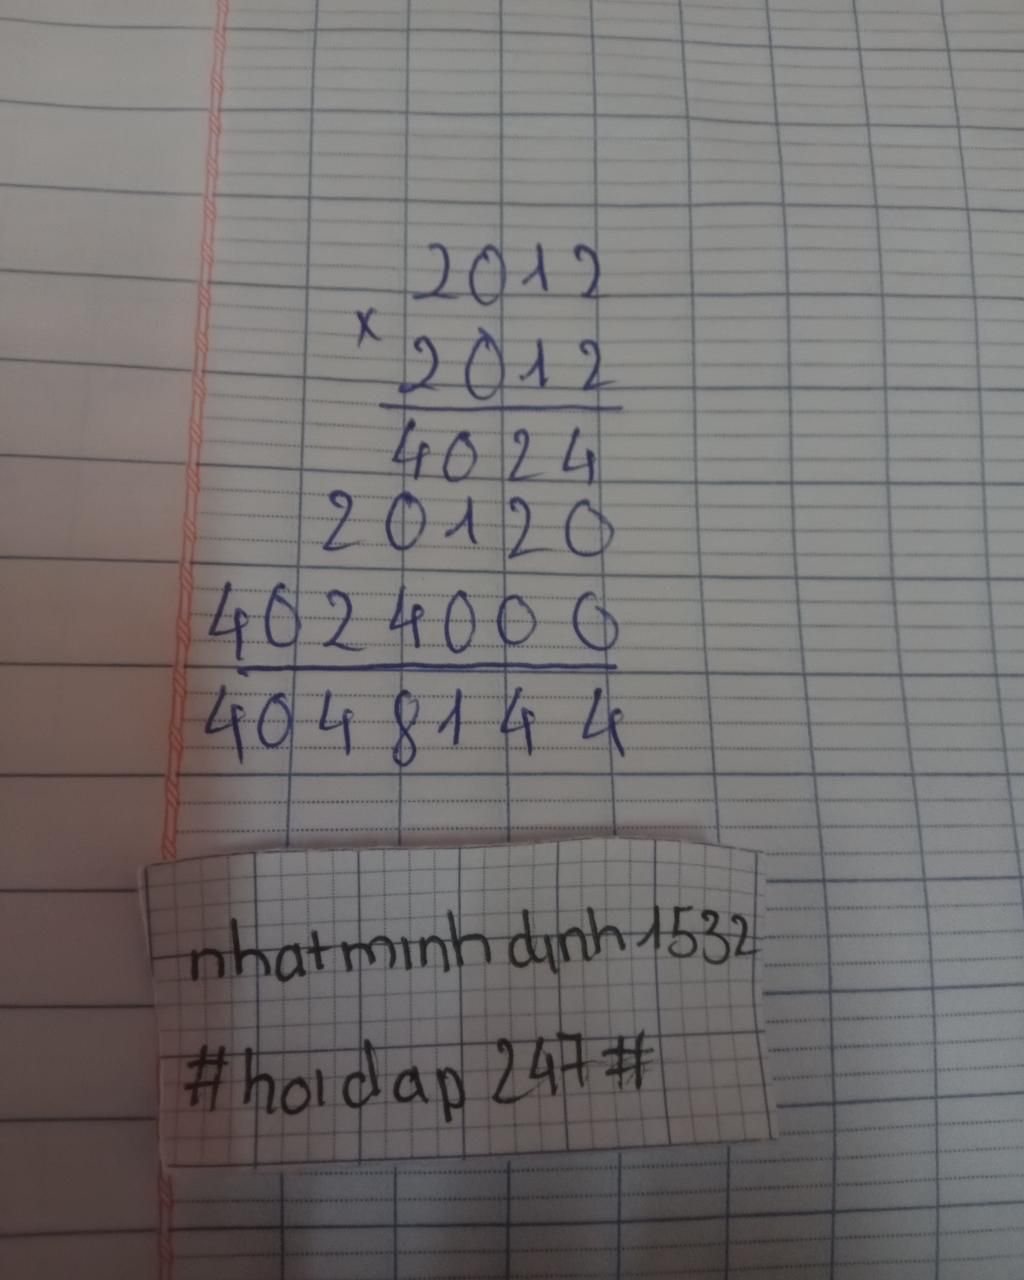 2012
x
2012
4024
20120
4024000
4048144
nhatminhdinh1532
#hoidap247#